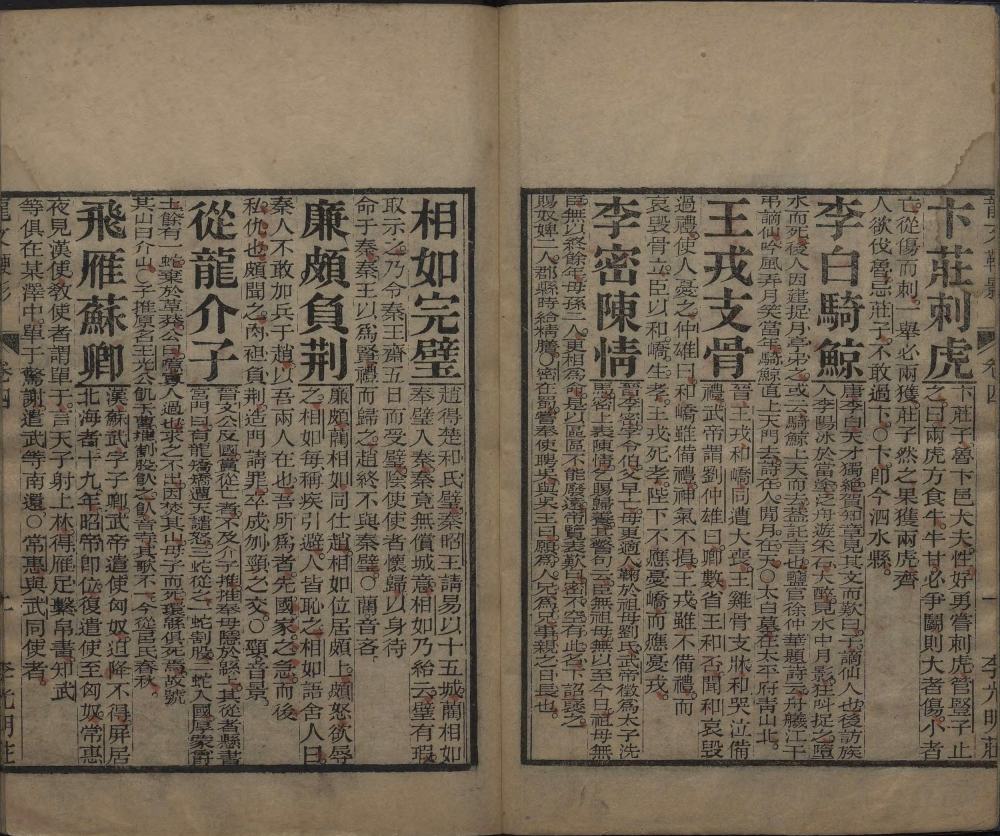 卞莊刺虎
卞莊子魯卞邑大夫性好勇管刺虎管豎子止
之曰兩虎方食牛牛甘必爭鬭則大者傷小者
亡從傷而刺一舉必兩獲莊子然之果獲兩虎齊
人欲伐魯忌莊子不敢過卞〇卞卽今泗水縣
李白騎鯨
唐李白天才獨絕賀知章見其文而歎曰子謫仙人也後訪族
人李陽冰於當塗之舟遊采石大醉見水中月影狂呌捉之墮
水而死後人因建捉月亭中之或云騎鯨上天而去蓋訛言也鹽官徐仲華題詩云舟艤江干
弔謫仙吟風弄月笑當年騎鯨直上天門去詩在人間月在天〇太白墓在太平府青山北
王戎支骨
晉王戎和嶠同遭大喪王雞骨支牀和哭泣備
禮武帝謂劉仲雄曰卿數省王和否聞和哀毀
過禮使人憂之仲雄曰和嶠雖備禮神氣不損王戎雖不備禮而
哀毀骨立臣以和嶠生孝王戎死孝陛下不應憂嶠而應憂戎
李密陳情
晉李密字令伯父早亡母更適人鞠於祖母劉氏武帝徵爲太子洗
馬密上表陳情乞賜歸養
臣無以終餘年母孫二人更相爲命是以區區不能廢遠帝覽表歎曰密不空有此名下詔褒之
賜奴婢二人郡縣時給精膳
相如完璧
趙得楚和氏璧秦昭王請易以十五城藺相如
奉璧入秦秦竟無償城意相如乃紿云璧有瑕
取示之乃令秦王齋五日而受璧陰使使者懷歸以身待
命于秦秦王以爲賢禮而歸之趙終不與秦璧〇藺音吝
廉頗負荆
廉頗藺相如同仕趙相如位居頗上頗怒欲辱
之相如每稱疾引避人皆恥之相如語舍人曰
秦人不敢加兵于趙以吾兩人在也吾所爲者先國家之急而後
私仇也頗聞之肉袒負荆造門請罪卒成刎頸之交〇頸音景
從龍介子
晉文公反國賞從亡者不及介子推推奉母隱於緜上其從者懸書
宮門曰有龍矯矯遭天譴怒三蛇從之一蛇割股二蛇入國厚蒙爵
土餘有一蛇棄於草莽公曰噫寡人過也求之不出因焚其山母子而死環緜俱死爲故號
其山曰介山〇子推原名王光
飛雁蘇卿
漢蘇武字子卿武帝遣使匈奴迫降不得屏居
北海者十九年昭帝卽位復遣使至匈奴常惠
夜見漢使教使者謂單于言天子射上林得雁足繫帛書知武
等俱在某澤中單于驚謝遣武等南還〇常惠與武同使者
卷四
李光明莊